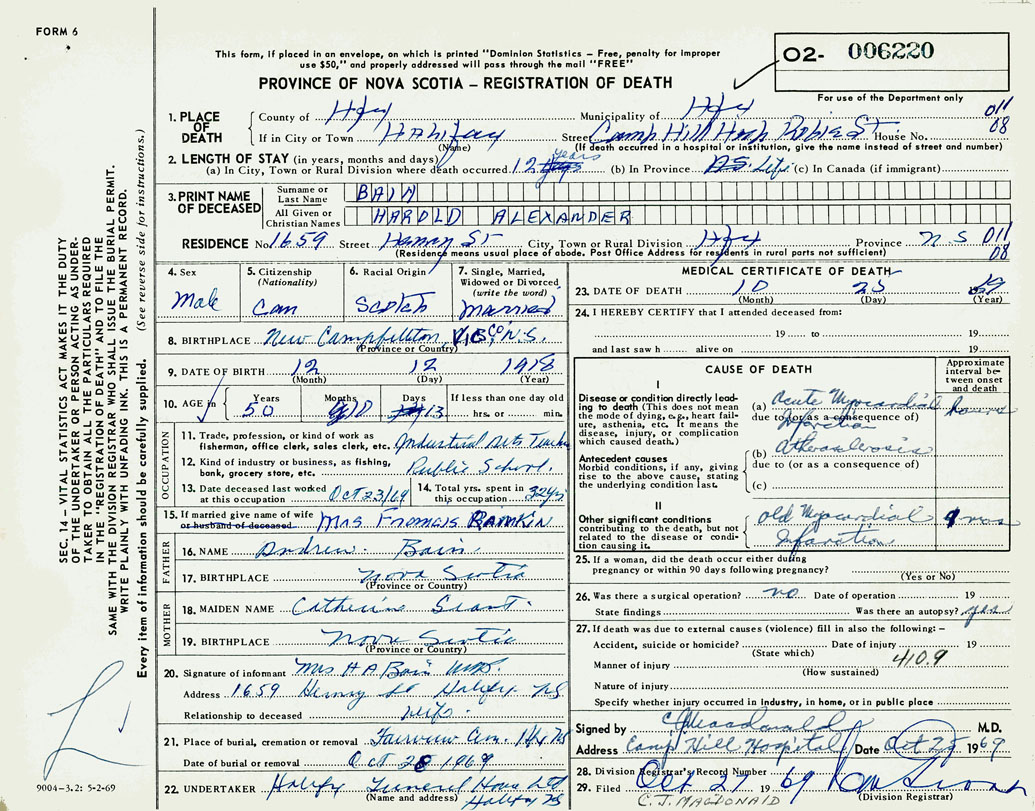 FORM 6
This form, if placed in an envelope, on which is printed "Dominion Statistics – Free, penalty for improper
use $50," and properly addressed will pass through the mail "FREE"
O2- 006220
PROVINCE OF NOVA SCOTIA – REGISTRATION OF DEATH
For use of the Department only
1. PLACE OF DEATH
County of Hfx Municipality of Hfx 011
If in City or Town Halifax Street Camp Hill Hosp Robie St House No. 08
(Name) (If death occurred in a hospital or institution, give the name instead of street and number)
2. LENGTH OF STAY (in years, months and days)
(a) In City, Town or Rural Division where death occurred 12 years (b) In Province Life (c) In Canada (if immigrant)
3. PRINT NAME OF DECEASED
Surname or Last Name BAIN
All Given or Christian Names HAROLD ALEXANDER
RESIDENCE No. 1659 Street Henry St City, Town or Rural Division Hfx Province N S 011
(Residence means usual place of abode. Post Office Address for residents in rural parts not sufficient) 08
4. Sex
Male
5. Citizenship
(Nationality)
Can
6. Racial Origin
Scotch
7. Single, Married,
Widowed or Divorced
(write the word)
Married
8. BIRTHPLACE New Campbellton Vic Co N.S.
(Province or Country)
9. DATE OF BIRTH 12 12 1918
(Month) (Day) (Year)
10. AGE in Years Months Days If less than one day old
50 10 13 hrs. or min.
OCCUPATION
11. Trade, profession, or kind of work as
fisherman, office clerk, sales clerk, etc. Industrial Arts Teacher
12. Kind of industry or business, as fishing,
bank, grocery store, etc. Public School.
13. Date deceased last worked
at this occupation Oct 23/69
14. Total yrs. spent in
this occupation 32 yrs
15. If married give name of wife
or husband of deceased Mrs Frances RANKIN
FATHER
16. NAME Andrew Bain
17. BIRTHPLACE Nova Scotia
(Province or Country)
MOTHER
18. MAIDEN NAME Catherine Grant.
19. BIRTHPLACE Nova Scotia
(Province or Country)
20. Signature of informant Mrs H A Bain
Address 1659 Henry St Halifax NS
Relationship to deceased wife.
21. Place of burial, cremation or removal Fairview Cem. Hfx NS
Date of burial or removal Oct 28 1969
22. UNDERTAKER Halifax Funeral Home Ltd
(Name and address) Halifax NS
MEDICAL CERTIFICATE OF DEATH
23. DATE OF DEATH 10 25 69
(Month) (Day) (Year)
24. I HEREBY CERTIFY that I attended deceased from:
19 to 19
and last saw h alive on 19
CAUSE OF DEATH
Approximate interval between onset and death
I
Disease or condition directly leading to death (This does not mean the mode of dying, e.g., heart failure, asthenia, etc. It means the disease, injury, or complication which caused death.)
(a) Acute Myocardial hours
due to (or as a consequence of)
Infarction
Antecedent causes
Morbid conditions, if any, giving rise to the above cause, stating the underlying condition last.
(b) Atherosclerosis
due to (or as a consequence of)
(c)
II
Other significant conditions contributing to the death, but not related to the disease or condition causing it.
Old Myocardial
Infarction
25. If a woman, did the death occur either during
pregnancy or within 90 days following pregnancy?
(Yes or No)
26. Was there a surgical operation? no Date of operation 19
State findings Was there an autopsy? yes
27. If death was due to external causes (violence) fill in also the following: –
Accident, suicide or homicide? Date of injury 19
(State which) 410.9
Manner of injury
(How sustained)
Nature of injury
Specify whether injury occurred in Industry, in home, or in public place
Signed by C J Macdonald M.D.
Address Camp Hill Hospital Date Oct 25 1969
28. Division Registrar's Record Number
29. Filed Oct 27 1969
C. J. MACDONALD (Division Registrar)
SEC. 14 – VITAL STATISTICS ACT MAKES IT THE DUTY
OF THE UNDERTAKER OR PERSON ACTING AS UNDER-
TAKER TO OBTAIN ALL THE PARTICULARS REQUIRED
IN THE "REGISTRATION OF DEATH" AND TO FILE THE
SAME WITH THE DIVISION REGISTRAR WHO SHALL ISSUE THE BURIAL PERMIT.
WRITE PLAINLY WITH UNFADING INK. THIS IS A PERMANENT RECORD.
Every item of information should be carefully supplied. (See reverse side for instructions.)
9004–3.2: 5-2-69